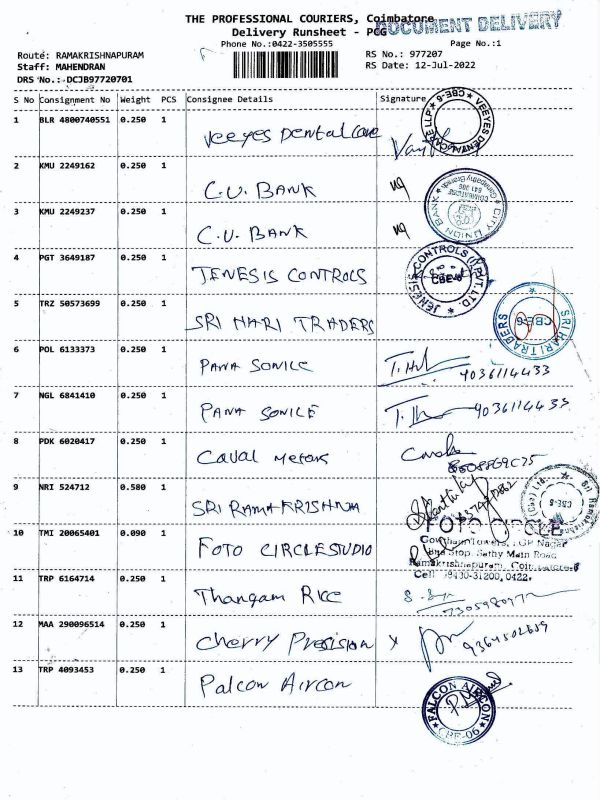 THE PROFESSIONAL COURIERS, Coimbatore
DOCUMENT DELIVERY
Delivery Runsheet - PCG
Phone No.:0422-3505555
Page No.:1
Route: RAMAKRISHNAPURAM
RS No.: 977207
Staff: MAHENDRAN
RS Date: 12-Jul-2022
DRS No.:-DCJB97720701
S No Consignment No Weight PCS Consignee Details Signature
1 BLR 4800740551 0.250 1 Veeyes Dental Care
VEEYES DENTAL CARE LLP * CBE-6 *
2 KMU 2249162 0.250 1 C.U. BANK
CITY UNION BANK
Ganapathy Branch
COIMBATORE
641 006
3 KMU 2249237 0.250 1 C.U. BANK
4 PGT 3649187 0.250 1 JENESIS CONTROLS
JENESIS CONTROLS (I) PVT. LTD.
CBE-6
5 TRZ 50573699 0.250 1 SRI HARI TRADERS
SRI HARI TRADERS
CBE-6
6 POL 6133373 0.250 1 PANA SONICE
9036114433
7 NGL 6841410 0.250 1 PANA SONICE
9036114433
8 PDK 6020417 0.250 1 Caval Meters
9 NRI 524712 0.580 1 SRI RAMAKRISHNA
Sri Ramakrishna
CBE-6
10 TMI 20065401 0.090 1 FOTO CIRCLE STUDIO
FOTO CIRCLE
Gowtham Towers, TGP Nagar
Bus Stop, Sathy Main Road
Ramakrishnapuram, Coimbatore-6
Cell : 98430-31200, 0422-
11 TRP 6164714 0.250 1 Thangam Rice
12 MAA 290096514 0.250 1 Cherry Precision x
9364502659
13 TRP 4093453 0.250 1 Palcon Aircon
FALCON AIRCON
CBE-06